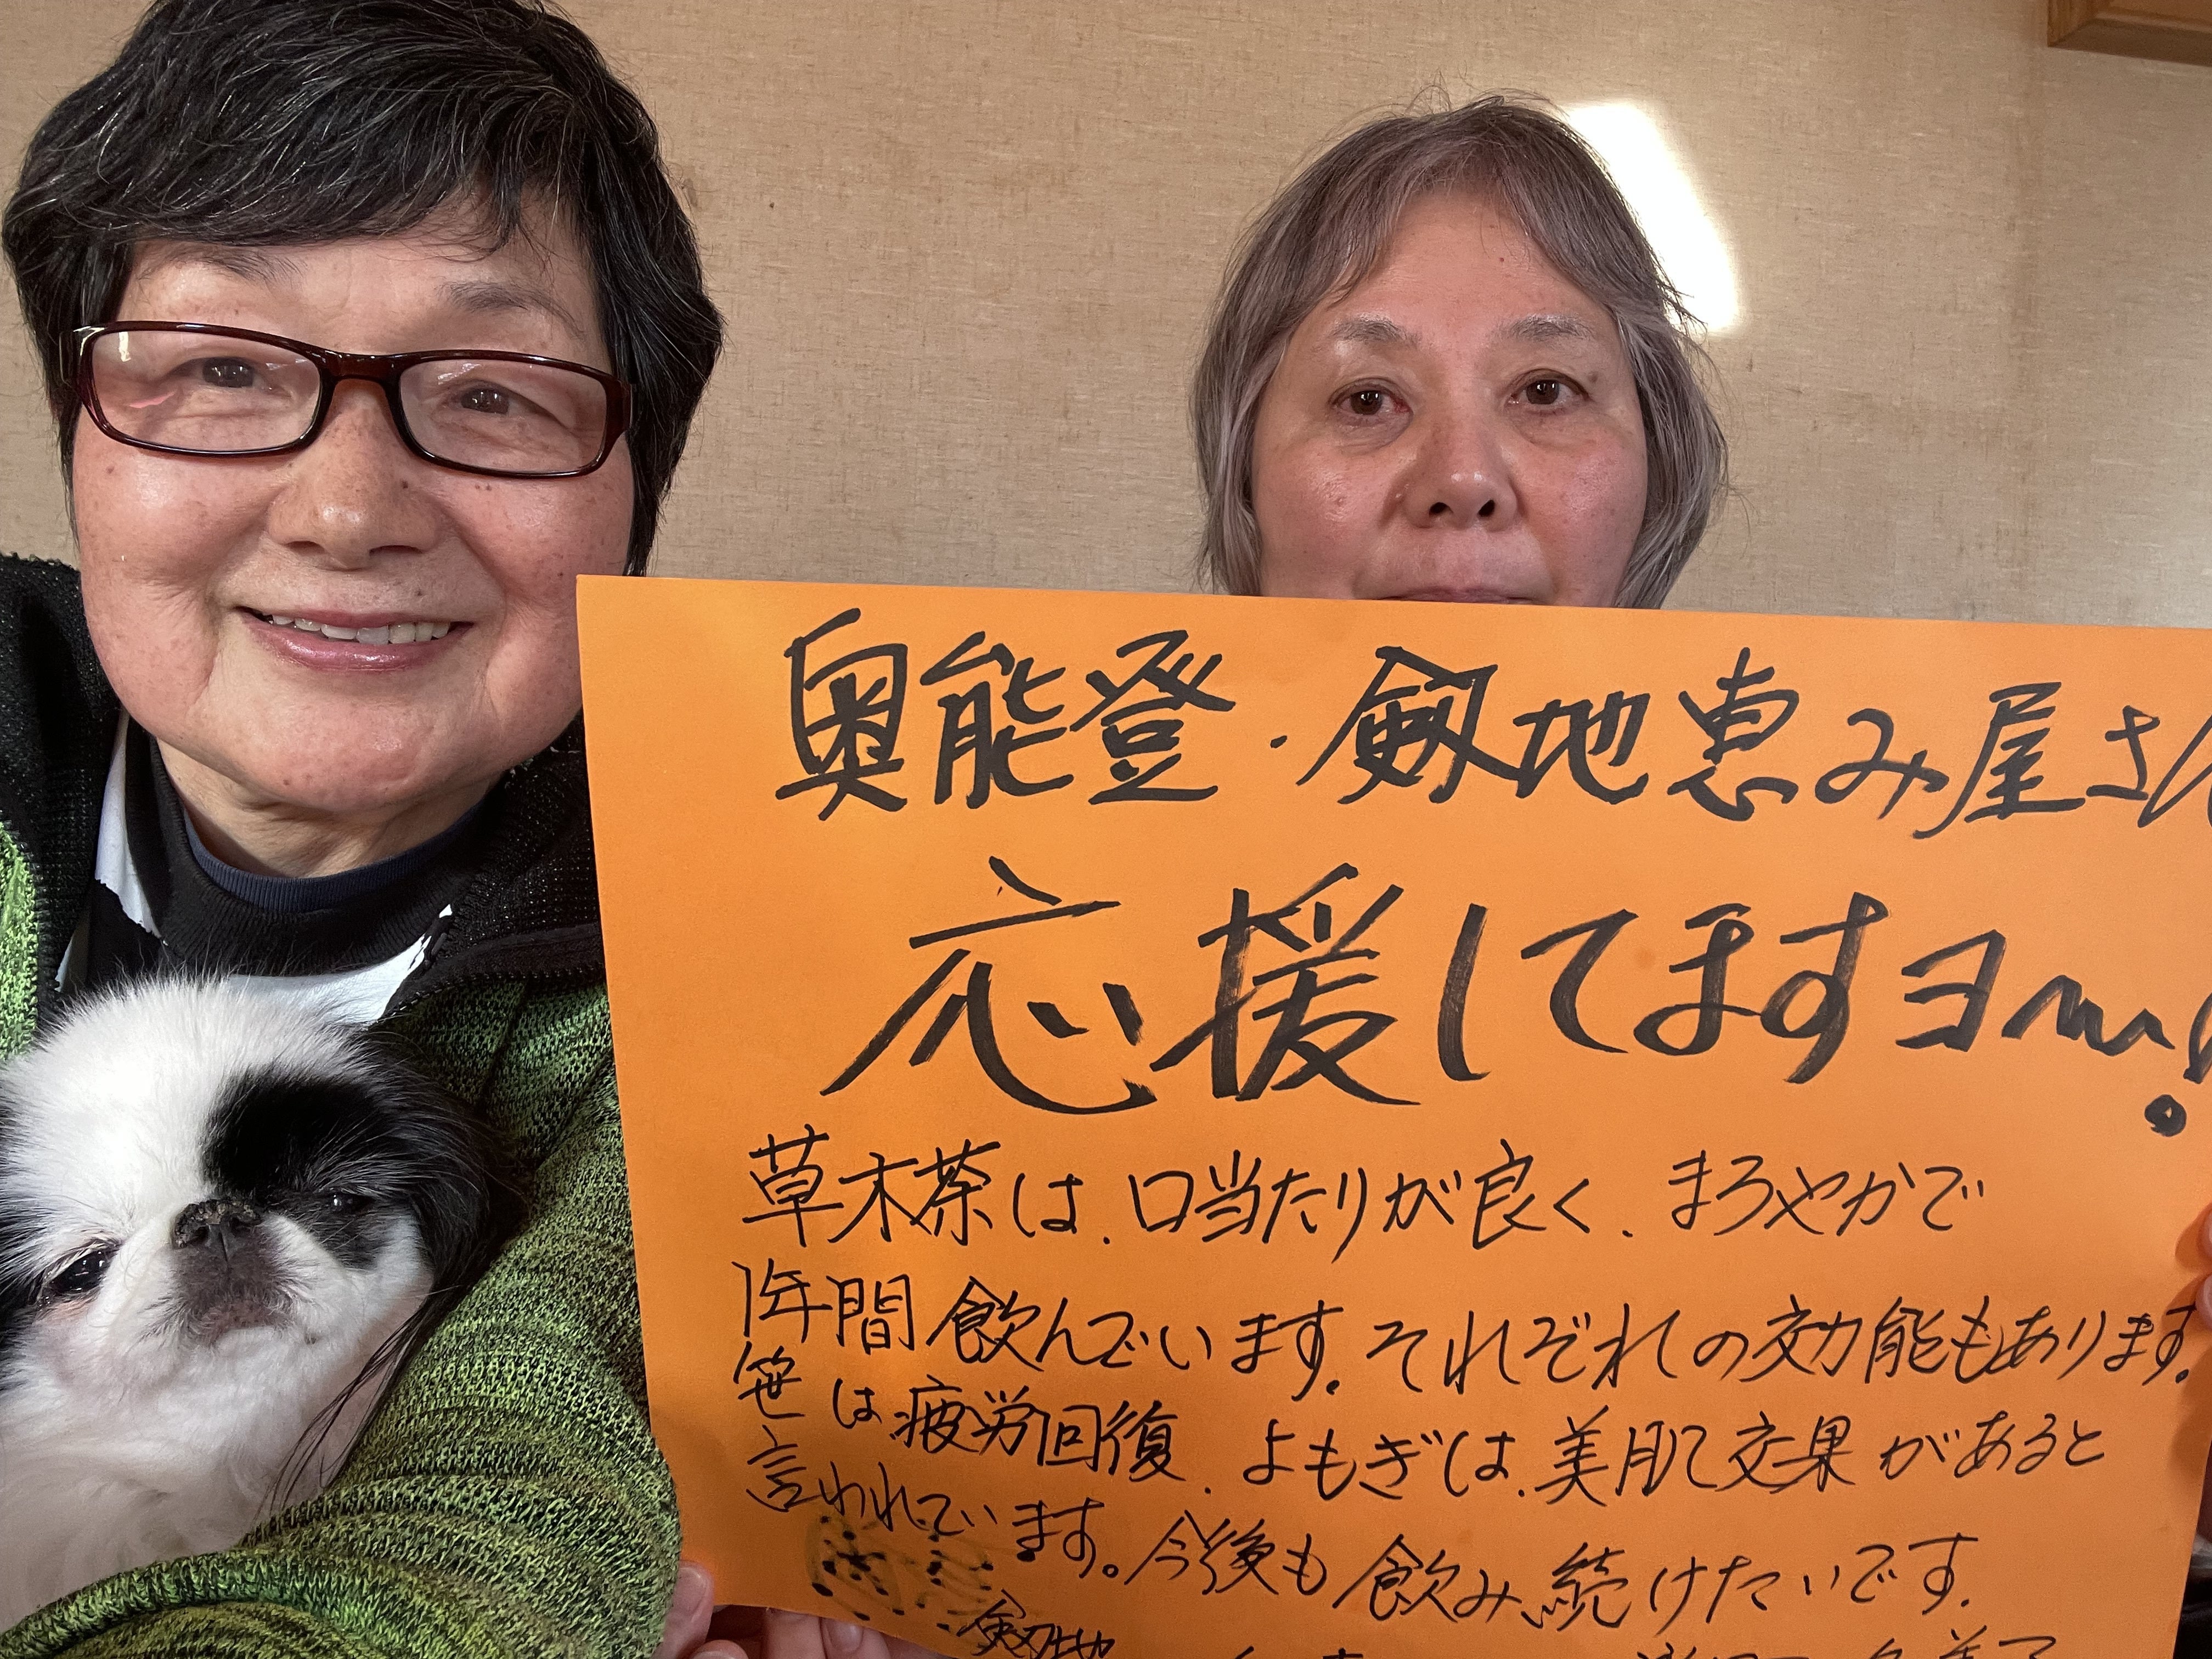 奥能登・劔地恵み屋さん
応援してますヨ〜!
草木茶は、口当たりが良く、まろやかで
1年間飲んでいます。それぞれの効能もあります。
笹は疲労回復、よもぎは、美肌効果があると
言われています。今後も飲み続けたいです。
劔地